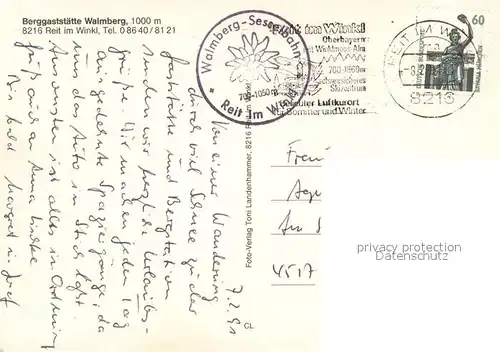 Berggaststätte Walmberg, 1000 m
8216 Reit im Winkl, Tel. 0 86 40 / 81 21
Walmberg-Sesselbahn
700-1050 m
Reit im
Reit im Winkl
Oberbayern
mit Winklmoos-Alm
700-1860m
Schneesicheres
Skizentrum
Luftkurort
für Sommer und Winter
REIT IM W
8216
60
Foto-Verlag Toni Landenhammer, 8216 Reit im Winkl
CL
7.2.91
Von einer Wanderung
durch viel Schnee zu der
Gaststätte und Bergstation
senden wir herzliche Urlaubs-
grüße. Wir machen jeden Tag
ausgedehnte Spaziergänge, da
uns das Auto im Stich
Ansonsten ist alles in Ordnung
Gruß auch an Anna
Bis bald Margret u. Josef
4517
privacy protection
watermark